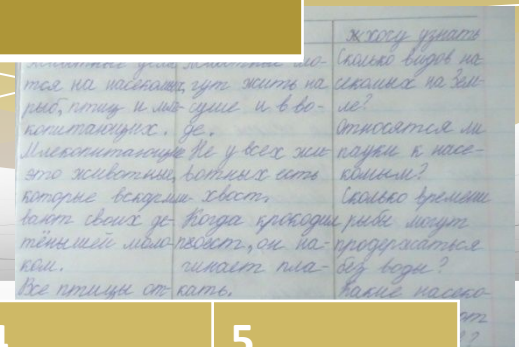 тся на насекомых,
рыб, птиц и мле-
копитающих.
Млекопитающие
это животные,
которые вскармли-
вают своих де-
тёнышей моло-
ком.
Все птицы от-
Животные мо-
гут жить на
суше и в во-
де.
Не у всех жи-
вотных есть
хвост.
Когда крокодил
поест, он на-
чинает пла-
кать.
Я хочу узнать
Сколько видов на
секомых на Зем-
ле?
Относятся ли
пауки к насе-
комым?
Сколько времени
рыбы могут
продержаться
без воды?
Какие насеко-
4
5